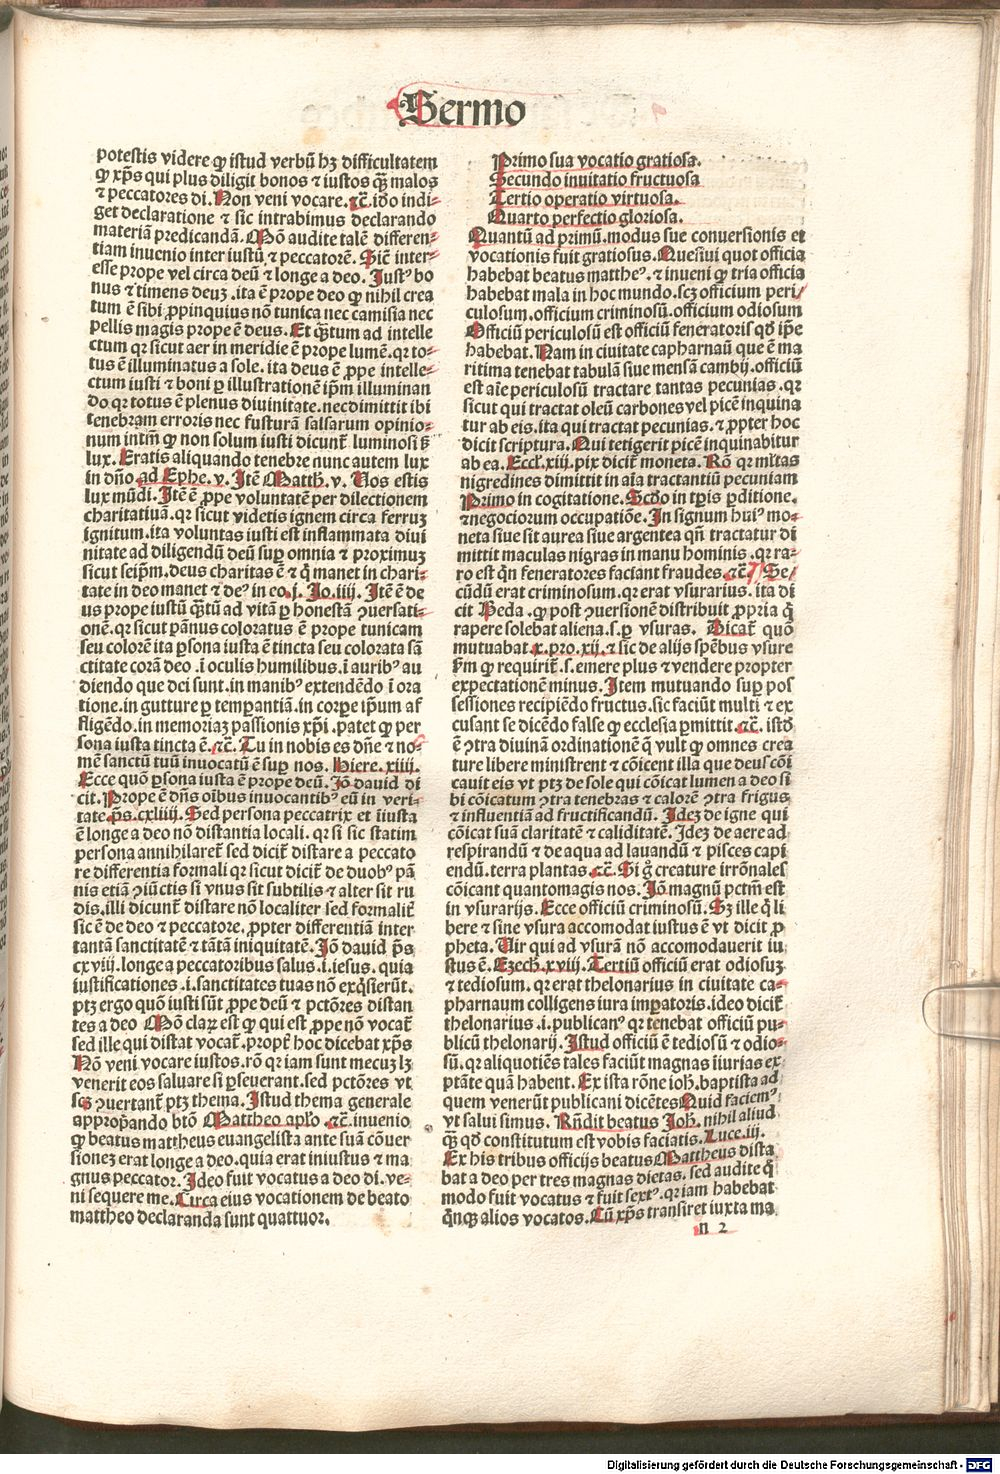 Sermo
potestis videre qȝ istud verbū hȝ difficultatem
qȝ xp̄s qui plus diligit bonos ⁊ iustos q̄ȝ malos
⁊ peccatores di. Non veni vocare. ⁊c̄. iđo indi⸗
get declaratione ⁊ sic intrabimus declarando
materiā predicandā. Nō audite talē differen⸗
tiam inuenio inter iustū ⁊ peccatorē. Siē inter⸗
esse prope vel circa deū ⁊ longe a deo. Justꝰ bo
nus ⁊ timens deuȝ .ita ē prope deo qȝ nihil crea
tum ē sibi ꝓpinquius nō tunica nec camisia nec
pellis magis prope ē deus. Et q̄ȝtum ad intelle
ctum qr sicut aer in meridie ē prope lumē. qr to⸗
tus ē illuminatus a sole. ita deus ē ꝓpe intelle⸗
ctum iusti ⁊ boni ꝑ illustrationē ip̄m illuminan
do qr totus ē plenus diuinitate. nec dimittit ibi
tenebram erroris nec fusturā falsarum opinio⸗
num intm̄ qȝ non solum iusti dicunt̄ luminosi sȝ
lux. Eratis aliquando tenebre nunc autem lux
in dn̄o ad Ephe. v. Itē Matth. v. Vos estis
lux mūdi. Itē ē ꝓpe voluntatē per dilectionem
charitatiuā. qr sicut videtis ignem circa ferruȝ
ignitum. ita voluntas iusti est inflammata diui
nitate ad diligendū deū suꝑ omnia ⁊ proximuȝ
sicut seip̄m. deus charitas ē ⁊ q̄ manet in chari⸗
tate in deo manet ⁊ deꝰ in eo. j. Jo. iiij. Itē ē de
us prope iustū q̄ȝtū ad vitā ꝑ honestā ꝯuersati⸗
onē. qr sicut pānus coloratus ē prope tunicam
seu colorē ita ꝑsona iusta ē tincta seu colorata sā
ctitate corā deo .i oculis humilibus .i auribꝰ au
diendo que dei sunt. in manibꝰ extendēdo i ora
tione. in gutture ꝑ temꝑantiā. in corꝑe ip̄um af
fligēdo. in memoriaȝ passionis xp̄i. patet qȝ per
sona iusta tincta ē. ⁊c̄. Tu in nobis es dn̄e ⁊ no⸗
mē sanctū tuū inuocatū ē suꝑ nos. Hiere. xiiij.
Ecce quō ꝑsona iusta ē prope deū. Jō dauid di
cit. Prope ē dn̄s oībus inuocantibꝰ eū in veri⸗
tate. p̄s. cxliiij. Sed persona peccatrix et iiusta
ē longe a deo nō distantia locali. qr si sic statim
persona annihilaret̄ sed dicit̄ distare a peccato
re differentia formali qr sicut dicit̄ de duobꝰ pā
nis etiā ꝯiūctis si vnus sit subtilis ⁊ alter sit ru
dis. illi dicunt̄ distare nō localiter sed formalit̄
sic ē de deo ⁊ peccatore. ꝓpter differentiā inter
tantā sanctitatē ⁊ tātā iniquitatē. Jō dauid p̄s
cxviij. longe a peccatoribus salus .i. iesus. quia
iustificationes .i. sanctitates tuas nō exq̄sierūt.
ptȝ ergo quō iusti sūt ꝓpe deū ⁊ pctōres distan
tes a deo Nō clarȝ est qȝ qui est ꝓpe nō vocat̄
sed ille qui distat vocat̄. propt̄ hoc dicebat xp̄s
Nō veni vocare iustos. rō qr iam sunt mecuȝ lȝ
venerit eos saluare si ꝑseuerant. sed pctōres vt
scȝ ꝯuertant̄ ptȝ thema. Istud thema generale
appropando btō Mattheo ap̄lo. ⁊c̄. inuenio
qȝ beatus mattheus euangelista ante suā cōuer
sioneȝ erat longe a deo. quia erat iniustus ⁊ ma
gnus peccator. Ideo fuit vocatus a deo di. ve⸗
ni sequere me. Circa eius vocationem de beato
mattheo declaranda sunt quattuor.
Primo sua vocatio gratiosa.
Secundo inuitatio fructuosa
Tertio operatio virtuosa.
Quarto perfectio gloriosa.
Quantū ad primū. modus sue conuersionis et
vocationis fuit gratiosus. Quesiui quot officia
habebat beatus mattheꝰ. ⁊ inueni qȝ tria officia
habebat mala in hoc mundo. scȝ officium peri/
culosum. officium criminosū. officium odiosum
Officiū periculosū est officiū feneratoris qđ ip̄e
habebat. Nam in ciuitate capharnaū que ē ma
ritima tenebat tabulā siue mensā cambij. officiū
est aīe periculosū tractare tantas pecunias. qr
sicut qui tractat oleū carbones vel picē inquina
tur ab eis. ita qui tractat pecunias. ⁊ ꝓpter hoc
dicit scriptura. Qui tetigerit picē inquinabitur
ab ea. Eccl̄. xiij. pix dicit̄ moneta. Rō qr ml̄tas
nigredines dimittit in aīa tractantiū pecuniam
Primo in cogitatione. Sc̄do in tp̄is ꝑditione.
⁊ negociorum occupatiōe. In signum huiꝰ mo⸗
neta siue sit aurea siue argentea qn̄ tractatur di
mittit maculas nigras in manu hominis. qr ra⸗
ro est qn̄ feneratores faciant fraudes. ⁊c̄. Se/
cūdū erat criminosum. qr erat vsurarius. ita di
cit Beda. qȝ post ꝯuersionē distribuit ꝓpria q̄
rapere solebat aliena. s. ꝑ vsuras. Dicat̄ quō
mutuabat. x. pro. xij. ⁊ sic de alijs spēbus vsure
s̄m qȝ requirit̄. s. emere plus ⁊ vendere propter
expectationē minus. Item mutuando suꝑ pos
sessiones recipiēdo fructus. sic faciūt multi ⁊ ex
cusant se dicēdo false qȝ ecclesia ꝑmittit. ⁊c̄. istđ
ē ꝯtra diuinā ordinationē q̄ vult qȝ omnes crea
ture libere ministrent ⁊ cōicent illa que deus cōi
cauit eis vt ptȝ de sole qui cōicat lumen a deo si
bi cōicatum ꝯtra tenebras ⁊ calorē ꝯtra frigus
⁊ influentiā ad fructificandū. Ideȝ de igne qui
cōicat suā claritatē ⁊ caliditatē. Ideȝ de aere ad
respirandū ⁊ de aqua ad lauandū ⁊ pisces capi
endū. terra plantas. ⁊c̄. Si g̊ creature irrōnales
cōicant quantomagis nos. Jō magnū pctm̄ est
in vsurarijs. Ecce officiū criminosū. Sȝ ille q̄ li
bere ⁊ sine vsura accomodat iustus ē vt dicit ꝓ
pheta. Vir qui ad vsurā nō accomodauerit iu
stus ē. Ezech. xviij. Tertiū officiū erat odiosuȝ
⁊ tediosum. qr erat thelonarius in ciuitate ca⸗
pharnaum colligens iura imꝑatoris. ideo dicit̄
thelonarius .i. publicanꝰ qr tenebat officiū pu⸗
blicū thelonarij. Istud officiū ē tediosū ⁊ odio⸗
sū. qr aliquotiēs tales faciūt magnas iiurias ex
ptāte quā habent. Ex ista rōne ioh. baptista ad
quem venerūt publicani dicētes Quid faciemꝰ
vt salui simus. Rn̄dit beatus Joh. nihil aliud
q̄ȝ qđ constitutum est vobis faciatis. Luce. iij.
Ex his tribus officijs beatus Mattheus dista
bat a deo per tres magnas dietas. sed audite q̄
modo fuit vocatus ⁊ fuit sextꝰ. qr iam habebat
q̄nqȝ alios vocatos. Cū xp̄s transiret iuxta ma
n 2
Digitalisierung gefördert durch die Deutsche Forschungsgemeinschaft - DFG